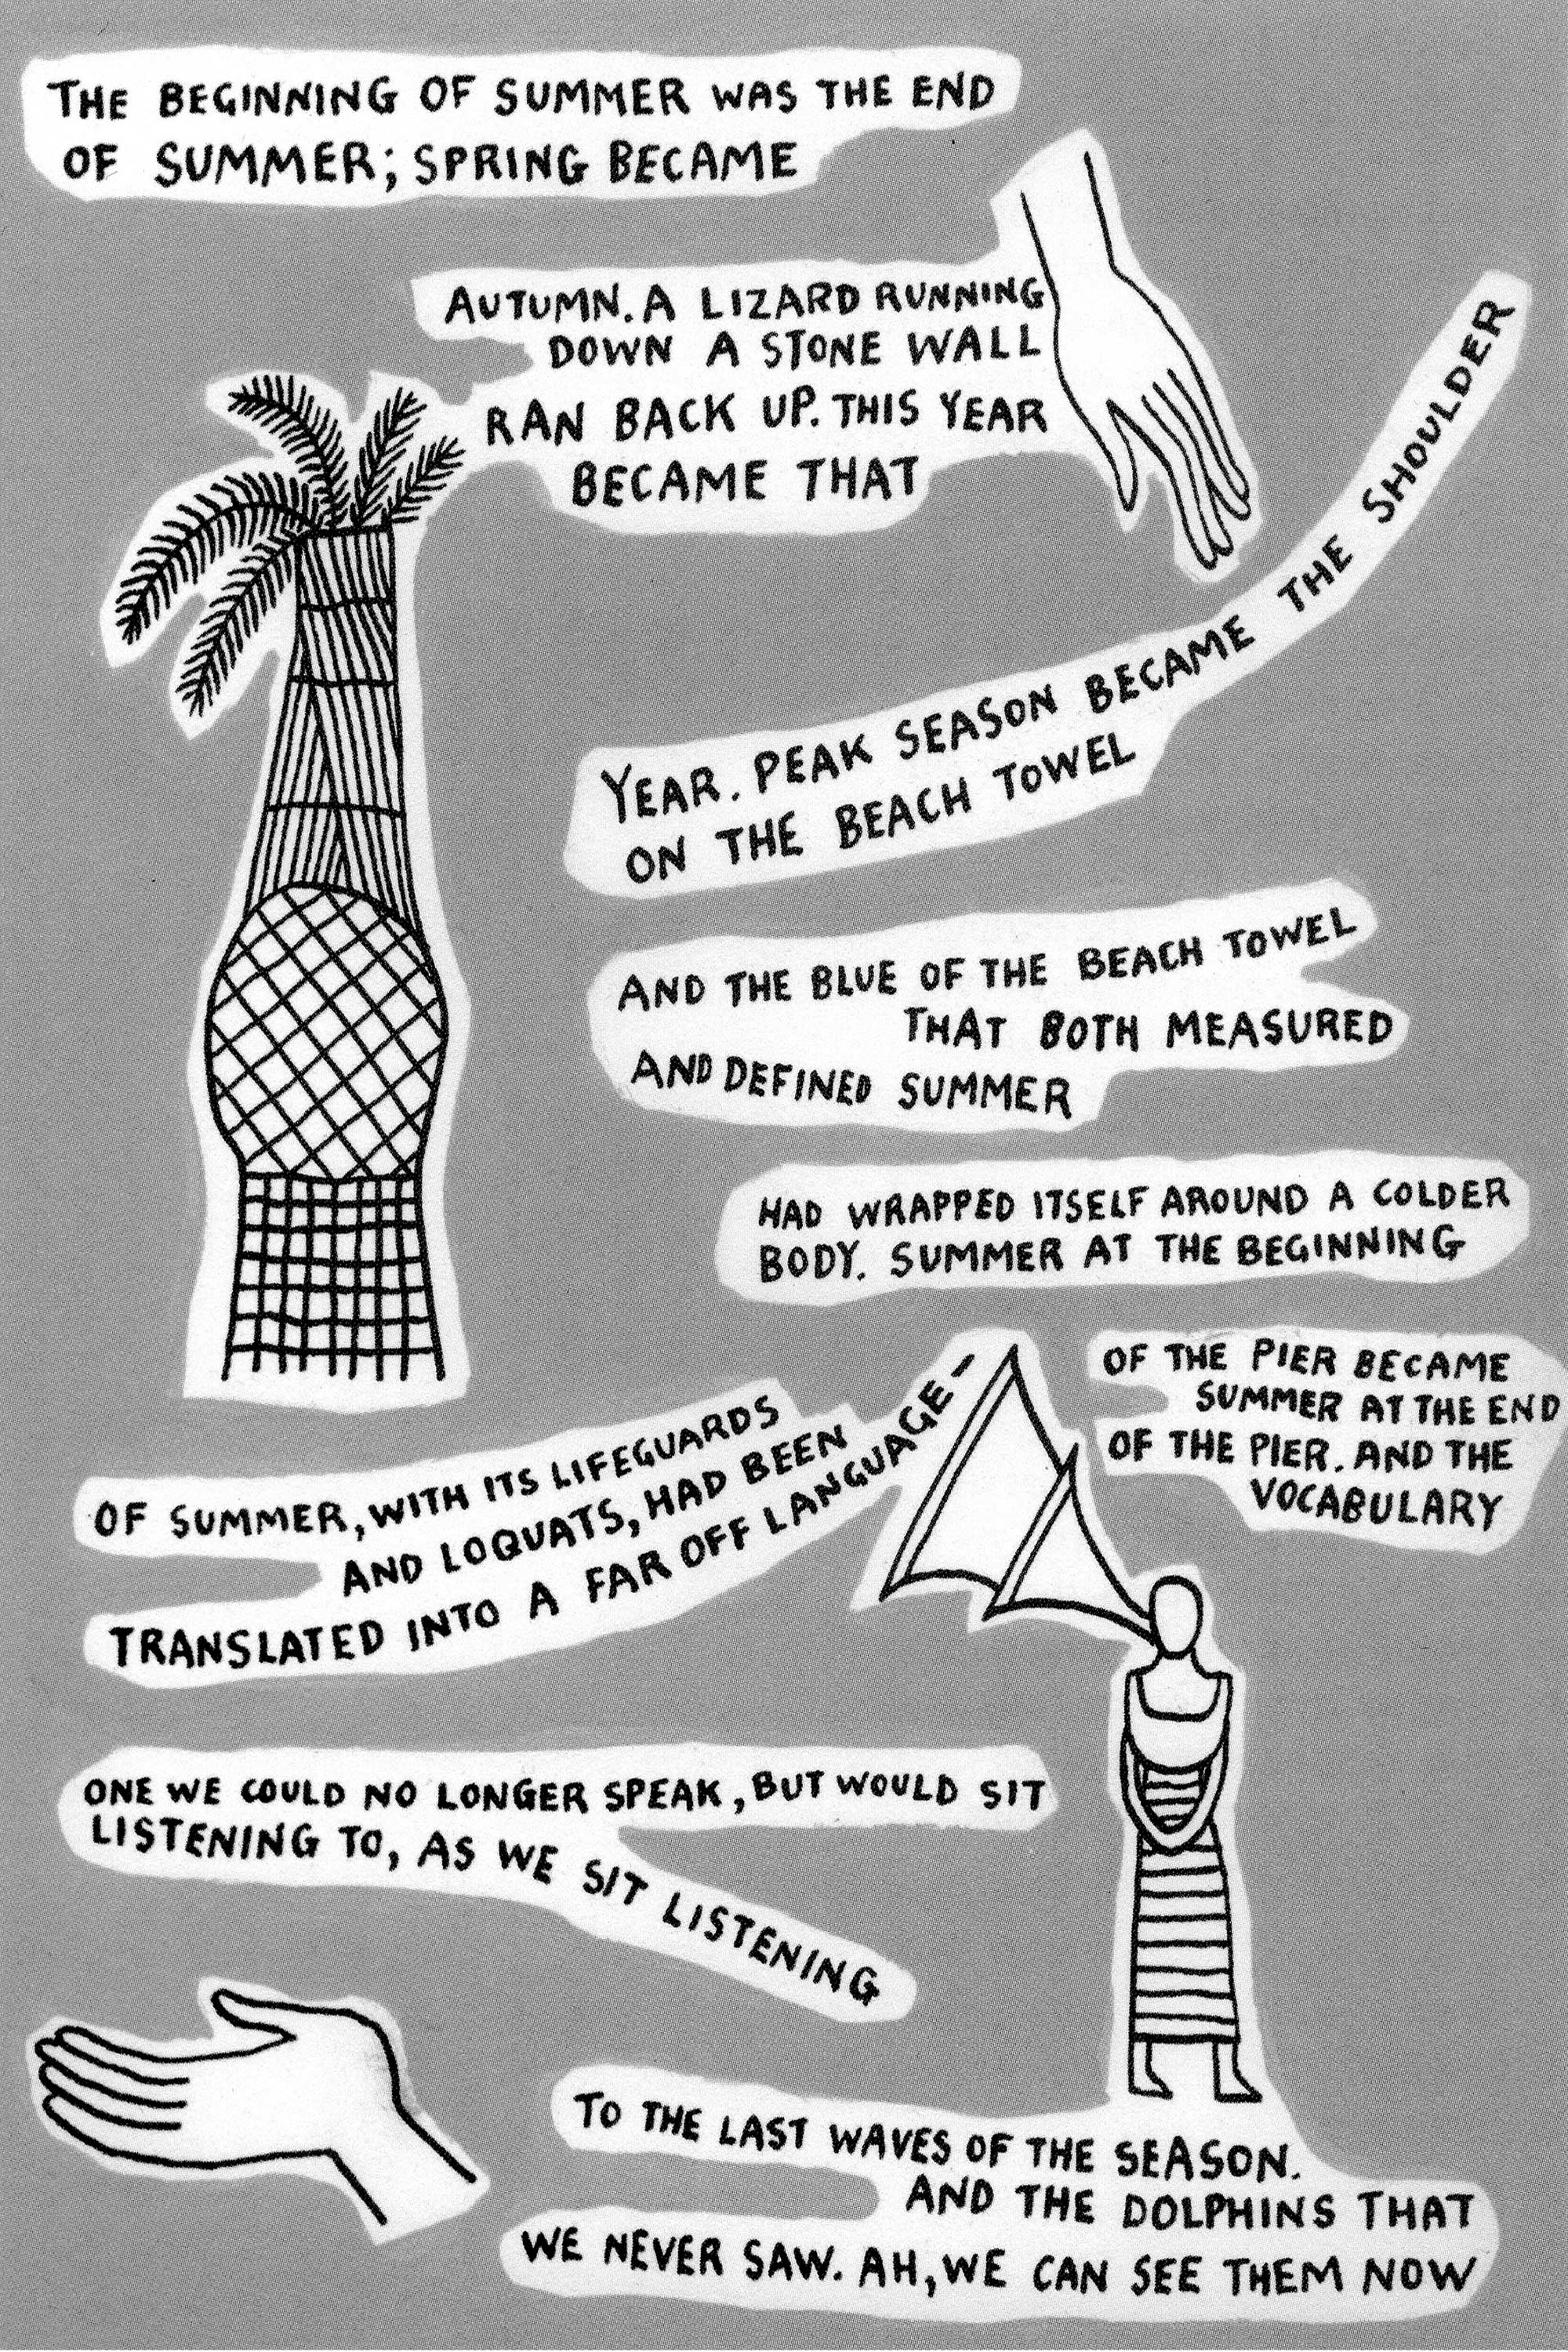 THE BEGINNING OF SUMMER WAS THE END
OF SUMMER; SPRING BECAME
AUTUMN. A LIZARD RUNNING
DOWN A STONE WALL
RAN BACK UP. THIS YEAR
BECAME THAT
YEAR. PEAK SEASON BECAME THE SHOULDER
ON THE BEACH TOWEL
AND THE BLUE OF THE BEACH TOWEL
THAT BOTH MEASURED
AND DEFINED SUMMER
HAD WRAPPED ITSELF AROUND A COLDER
BODY. SUMMER AT THE BEGINNING
OF THE PIER BECAME
SUMMER AT THE END
OF THE PIER. AND THE
VOCABULARY
OF SUMMER, WITH ITS LIFEGUARDS
AND LOQUATS, HAD BEEN
TRANSLATED INTO A FAR OFF LANGUAGE–
ONE WE COULD NO LONGER SPEAK, BUT WOULD SIT
LISTENING TO, AS WE SIT LISTENING
TO THE LAST WAVES OF THE SEASON.
AND THE DOLPHINS THAT
WE NEVER SAW. AH, WE CAN SEE THEM NOW